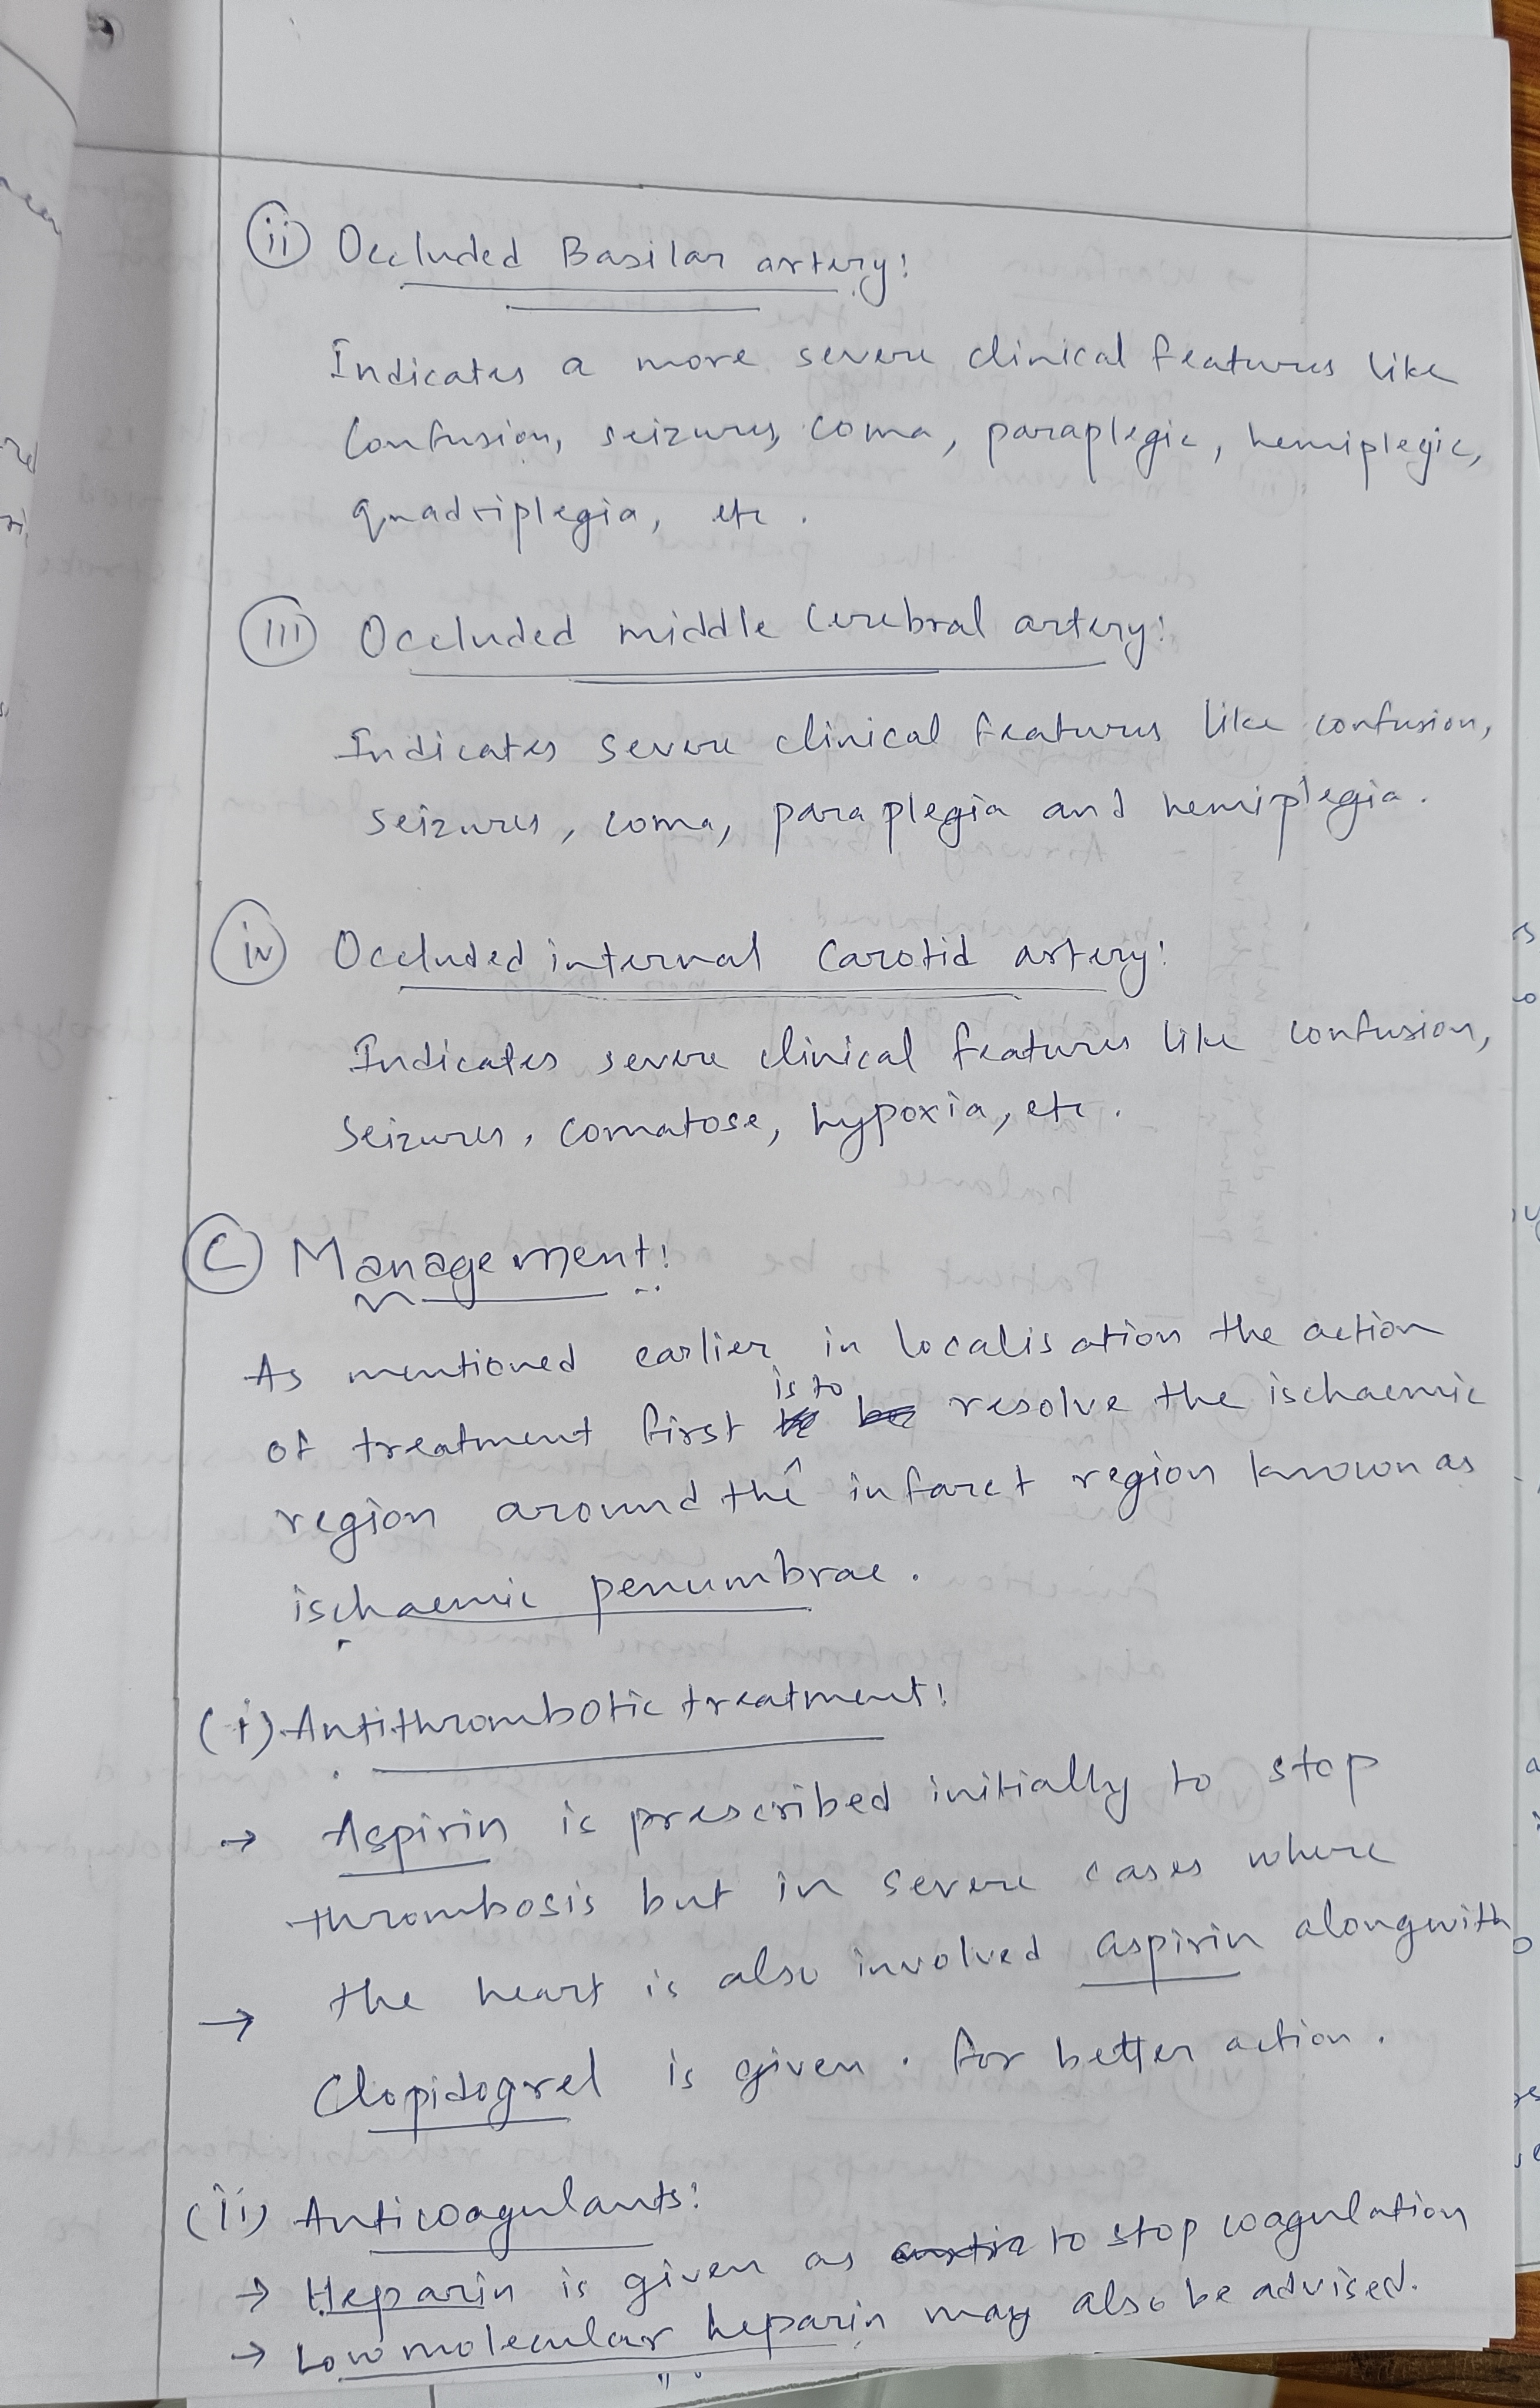 (ii) Occluded Basilar artery:
Indicates a more severe clinical features like
Confusion, seizures, coma, paraplegic, hemiplegic,
quadriplegia, etc.
(iii) Occluded middle Cerebral artery:
Indicates severe clinical features like confusion,
seizures, coma, paraplegia and hemiplegia.
(iv) Occluded internal Carotid artery:
Indicates severe clinical features like confusion,
Seizures, comatose, hypoxia, etc.
(C) Management:
As mentioned earlier in localisation the action
of treatment first is to resolve the ischaemic
region around the infarct region known as
ischaemic penumbrae.
(i) Antithrombotic treatment:
→ Aspirin is prescribed initially to stop
thrombosis but in severe cases where
→ the heart is also involved aspirin alongwith
Clopidogrel is given. for better action.
(ii) Anticoagulants:
→ Heparin is given as to stop coagulation
→ Low molecular heparin may also be advised.